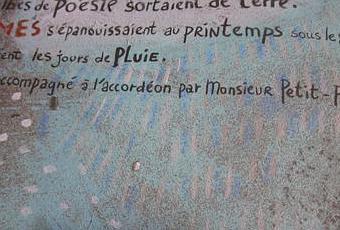 de poésie sortaient de terre.
MES s'épanouissaient au printemps sous les
ent les jours de PLUIE.
ccompagné à l'accordéon par Monsieur Petit-P